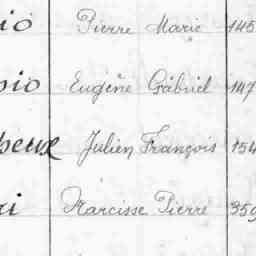 io Pierre Marie 145
pio Eugène Gabriel 147
heux Julien François 154
ri Narcisse Pierre 359